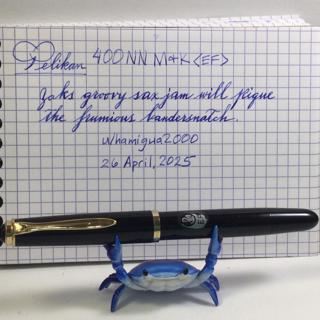 Pelikan 400NN M&K <EF>
Zaks groovy sax jam will pique
the frumious bandersnatch.
whamigua2000
26 April, 2025